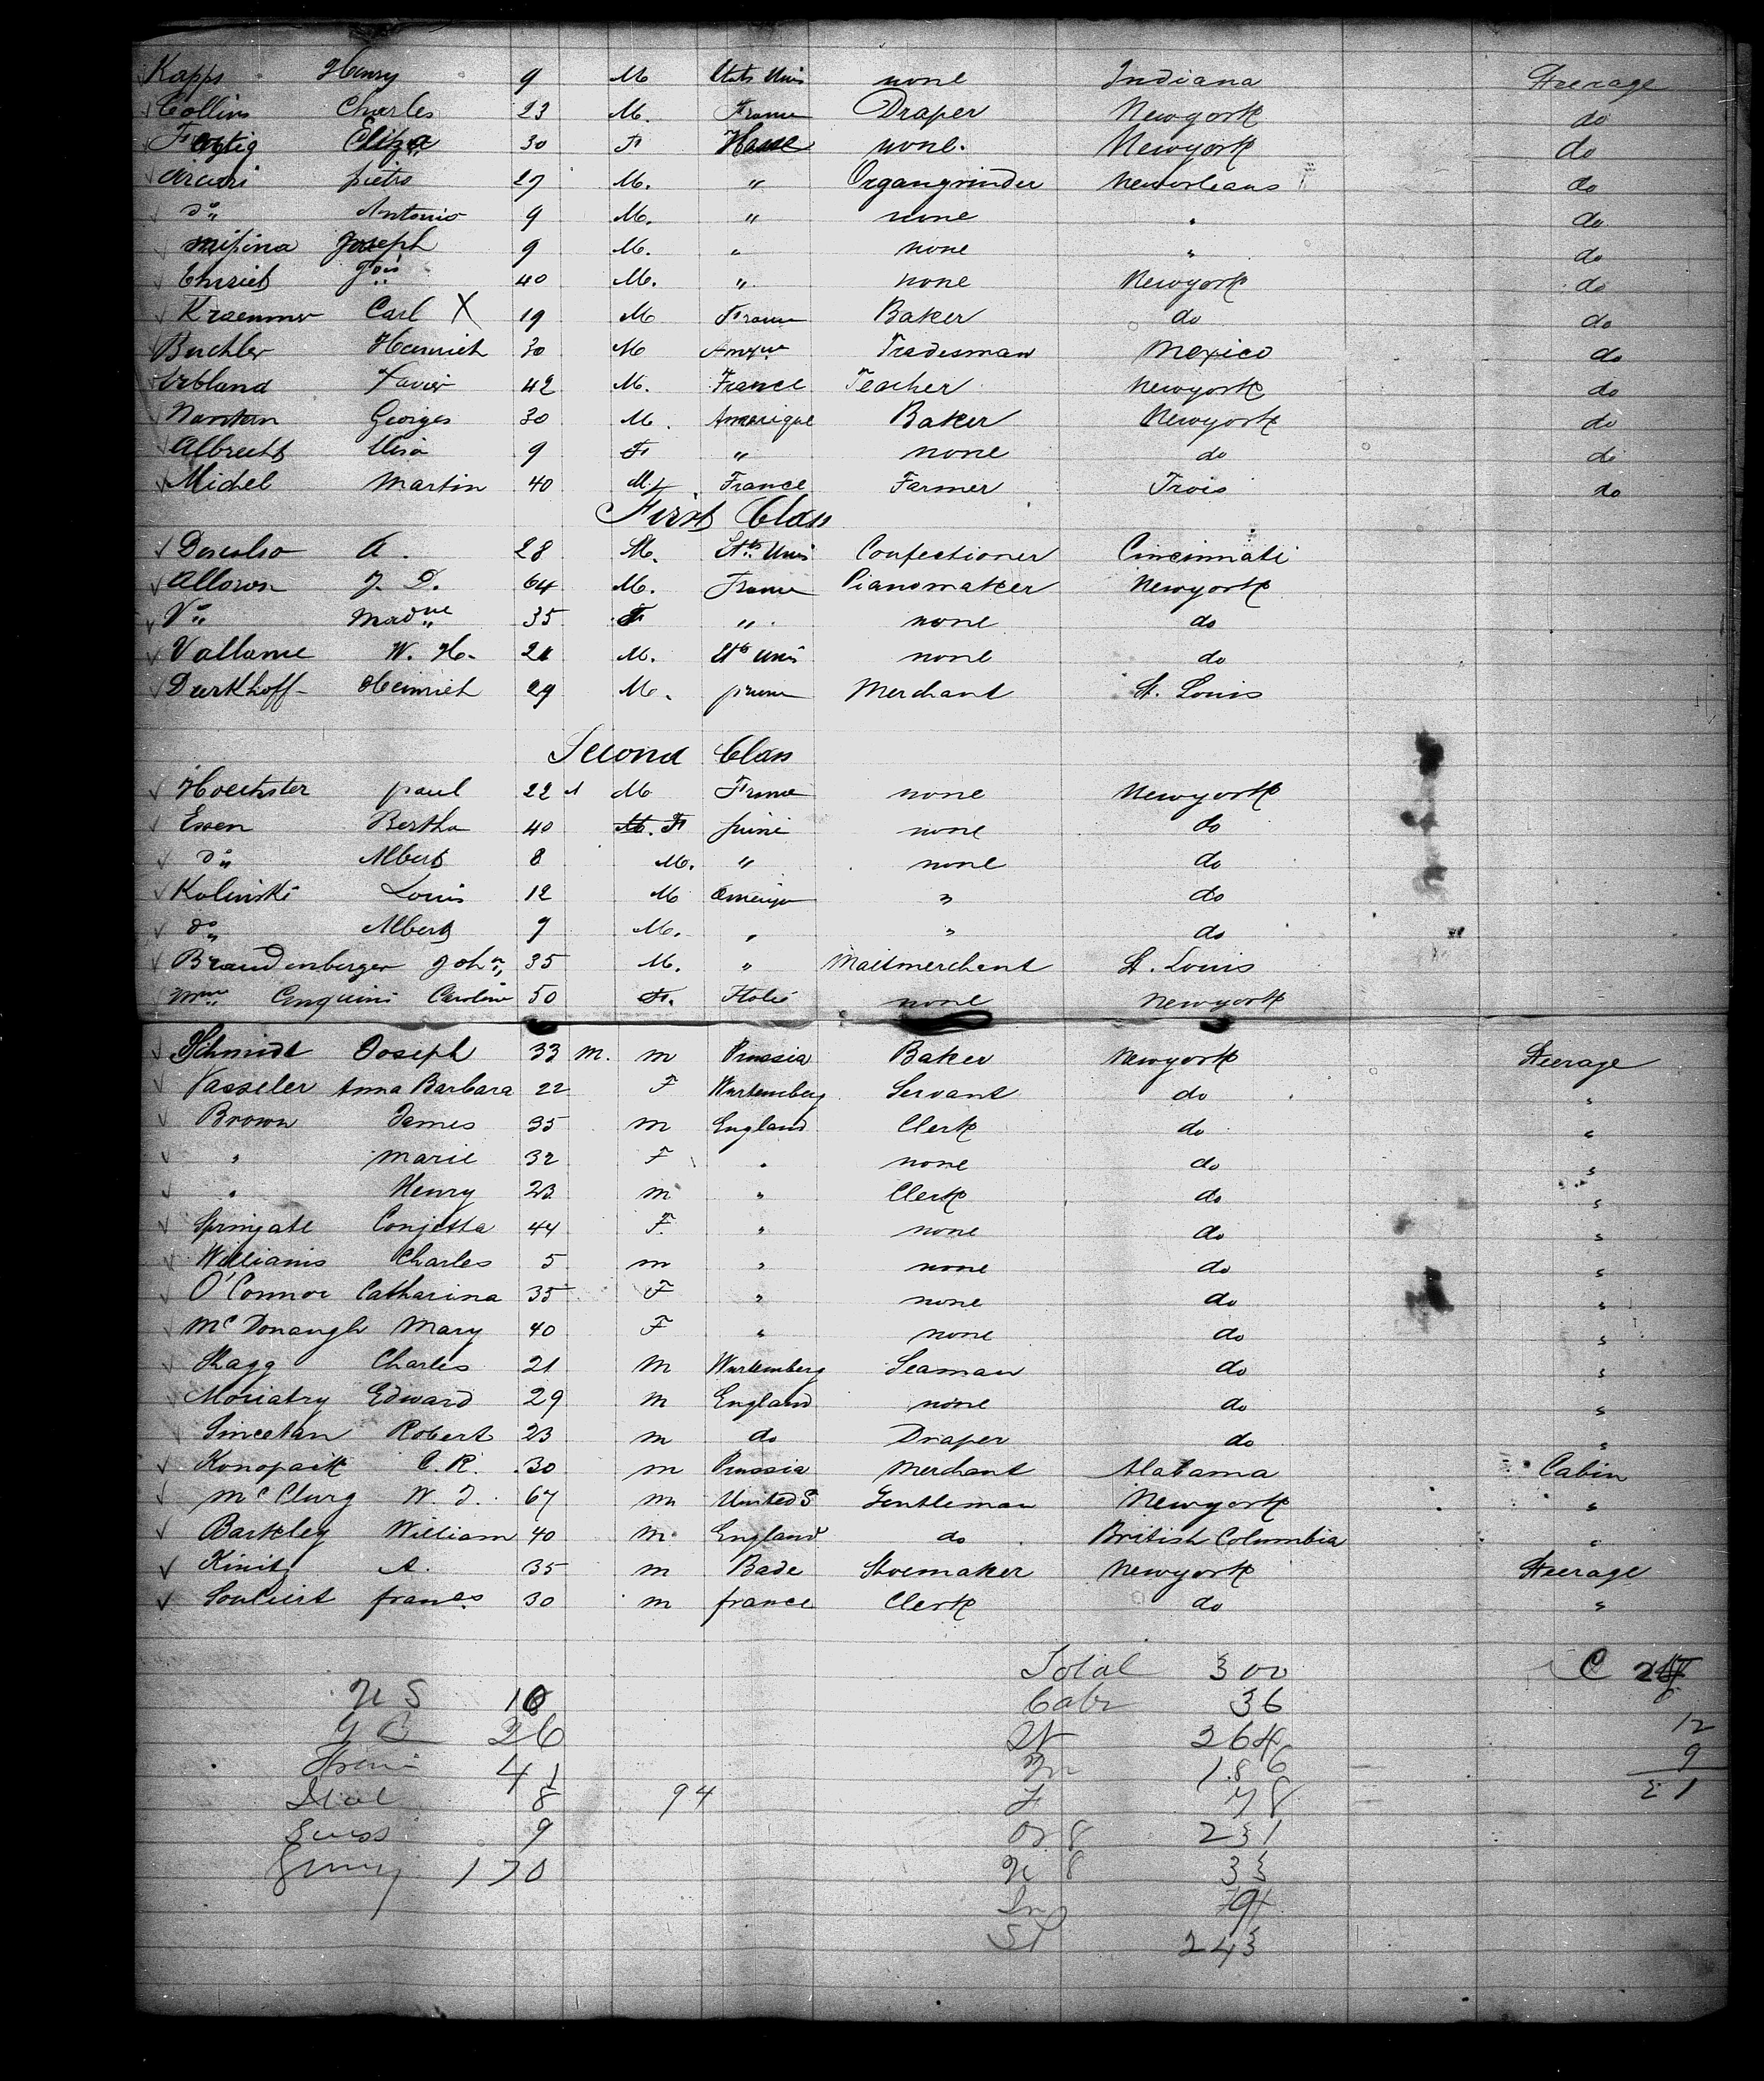 Kapps Henry 9 M Etats Unis none Indiana Steerage
Collins Charles 23 M. France Draper Newyork do
Eliza 30 F none. Newyork do
Arcuri pietro 27 M. " Organgrinder Neworleans do
do Antonio 9 M. " none " do
Joseph 9 M. " none " do
40 M. " none Newyork do
Kraemmer Carl X 19 M France Baker do do
Buchler Heinrich 30 M Tradesman Mexico do
Xavier 42 M. France Teacher Newyork do
Georges 30 M. Amerique Baker Newyork do
Albrecht 9 F " none do do
Michel Martin 40 M. France Farmer Trois do
First Class
A. 28 M. Sts. Unis Confectioner Cincinnati
J. D. 64 M. France Pianomaker Newyork
Madme 35 F " none do
W. H. 21 M. Sts Unis none do
Durkhoff Heinrich 29 M. Merchant St. Louis
Second Class
Hoechster paul 22 M France none Newyork
Essen Bertha 40 F none do
do Albert 8 M. " none do
Kolinski Louis 12 M " do
do Albert 9 M. " " do
Brandenberger John 35 M. " Maltmerchant St. Louis
Mme Caroline 50 F. Italie none Newyork
Schmidt Joseph 33 m. m Prussia Baker Newyork Steerage
Vasseler Anna Barbara 22 F Wurtemberg Servant do "
Brown James 35 m England Clerk do "
" Marie 32 F " none do "
" Henry 23 m " Clerk do "
Springate 44 F. " none do "
Williams Charles 5 m " none do "
O'Connor Catharina 35 F " none do "
McDonaugh Mary 40 F " none do "
Skagg Charles 21 m Wurtemberg Seaman do "
Moriatry Edward 29 m England none do "
Sincetan Robert 23 m do Draper do "
Konopaik C. R. 30 m Prussia Merchant Alabama Cabin
McClurg W. J. 67 m United S Gentleman Newyork "
Barkley William 40 m England do British Columbia "
Kinitz A. 35 m Bade Shoemaker Newyork Steerage
francs 30 m france Clerk do "
Total 300 C
U S 10 Cabr 36
G B 26 St 264 12
41 M 186 9
Ital 8 94 F 78 21
Suiss 9 231
Germy 170 33
243